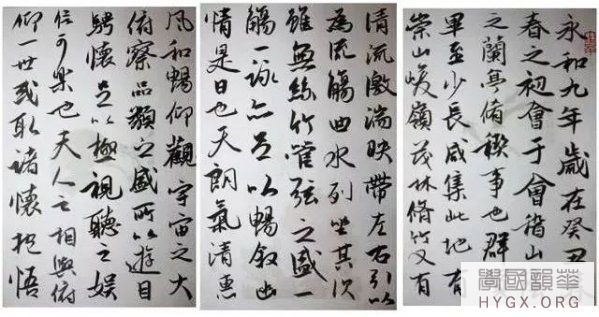 永和九年歲在癸丑
春之初會于會稽山
之蘭亭脩稧事也群
畢至少長咸集此地有
崇山峻嶺茂林脩竹又有
清流激湍映帶左右引以
為流觴曲水列坐其次
雖無絲竹管弦之盛一
觴一詠亦足以暢敘幽
情是日也天朗氣清惠
風和暢仰觀宇宙之大
俯察品類之盛所以遊目
騁懷足以極視聽之娛
信可樂也夫人之相與俯
仰一世或取諸懷抱悟
學國韻華
HYGX.ORG